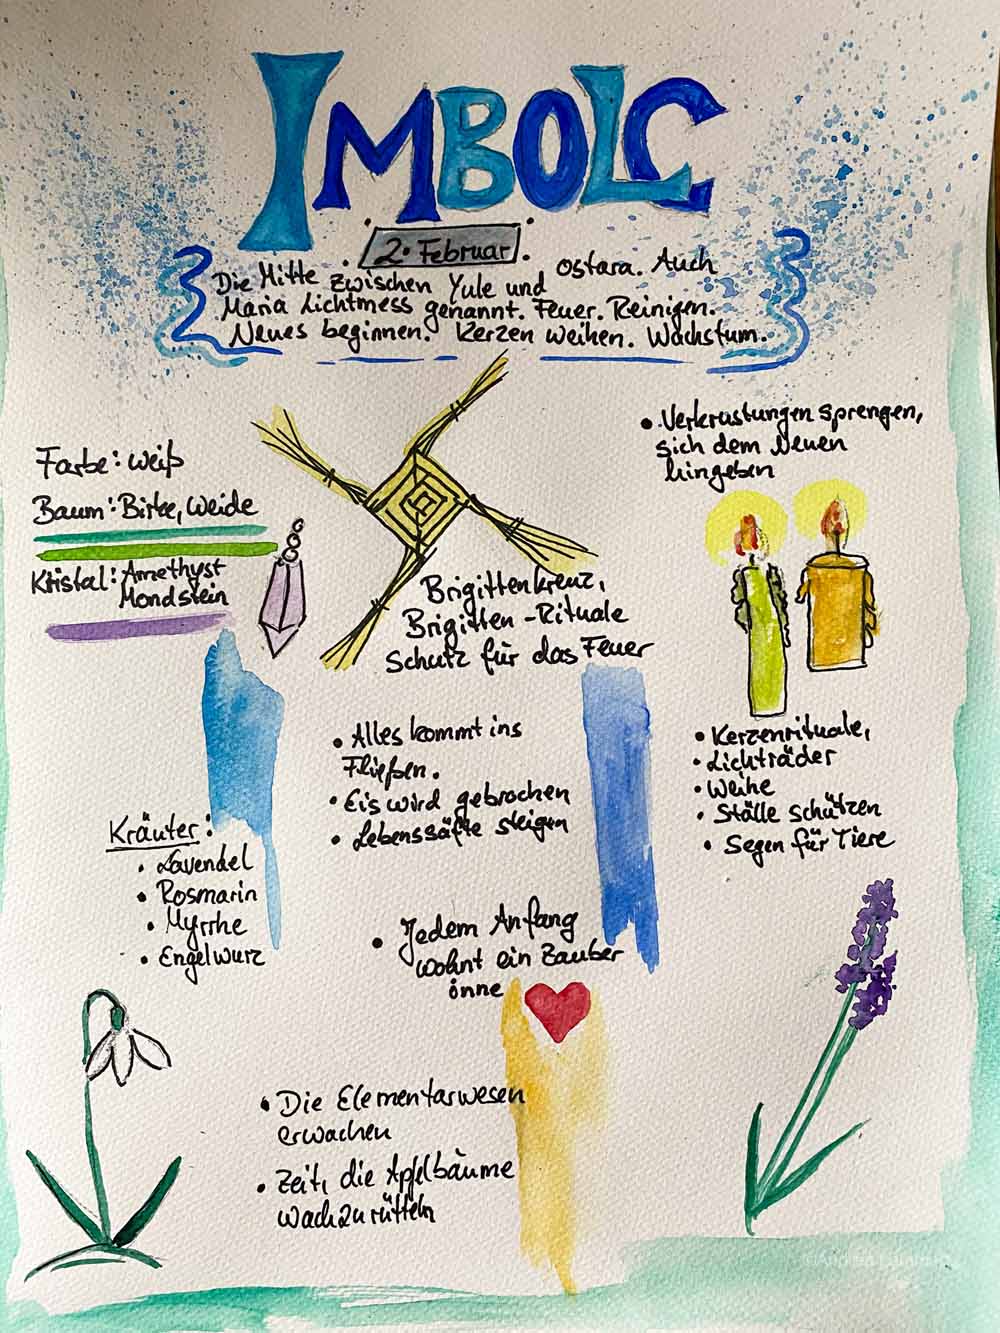 IMBOLC
2. Februar
Die Mitte zwischen Yule und Ostara. Auch
Maria Lichtmess genannt. Feuer. Reinigen.
Neues beginnen. Kerzen weihen. Wachstum.
• Verkrustungen sprengen,
sich dem Neuen
hingeben
Farbe: weiß
Baum: Birke, Weide
Kristal: Amethyst
Mondstein
Brigittenkreuz,
Brigitten-Rituale
Schutz für das Feuer
• Alles kommt ins
Fließen.
• Eis wird gebrochen
• Lebenssäfte steigen
• Kerzenrituale,
• Lichträder
• Weihe
• Ställe schützen
• Segen für Tiere
Kräuter:
• Lavendel
• Rosmarin
• Myrrhe
• Engelwurz
• Jedem Anfang
wohnt ein Zauber
inne
• Die Elementarwesen
erwachen
• Zeit, die Apfelbäume
wachzurütteln